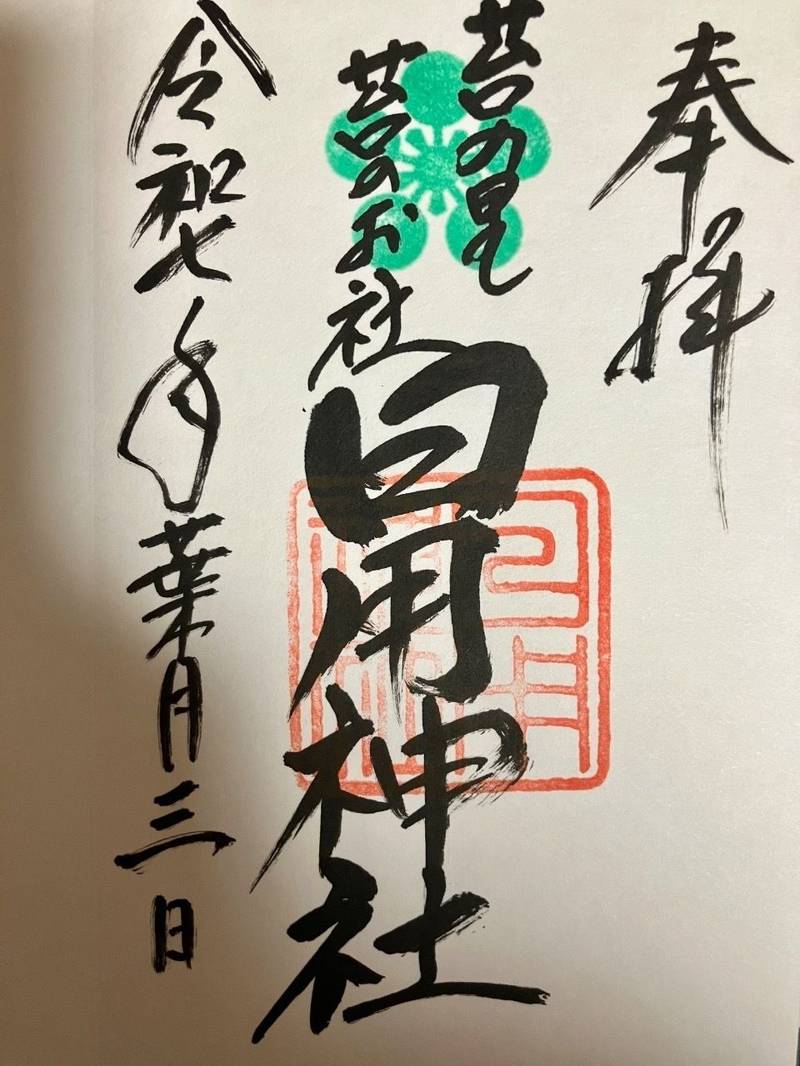 奉拝
苔の里
苔のお社
日用神社
令和七年葉月三日